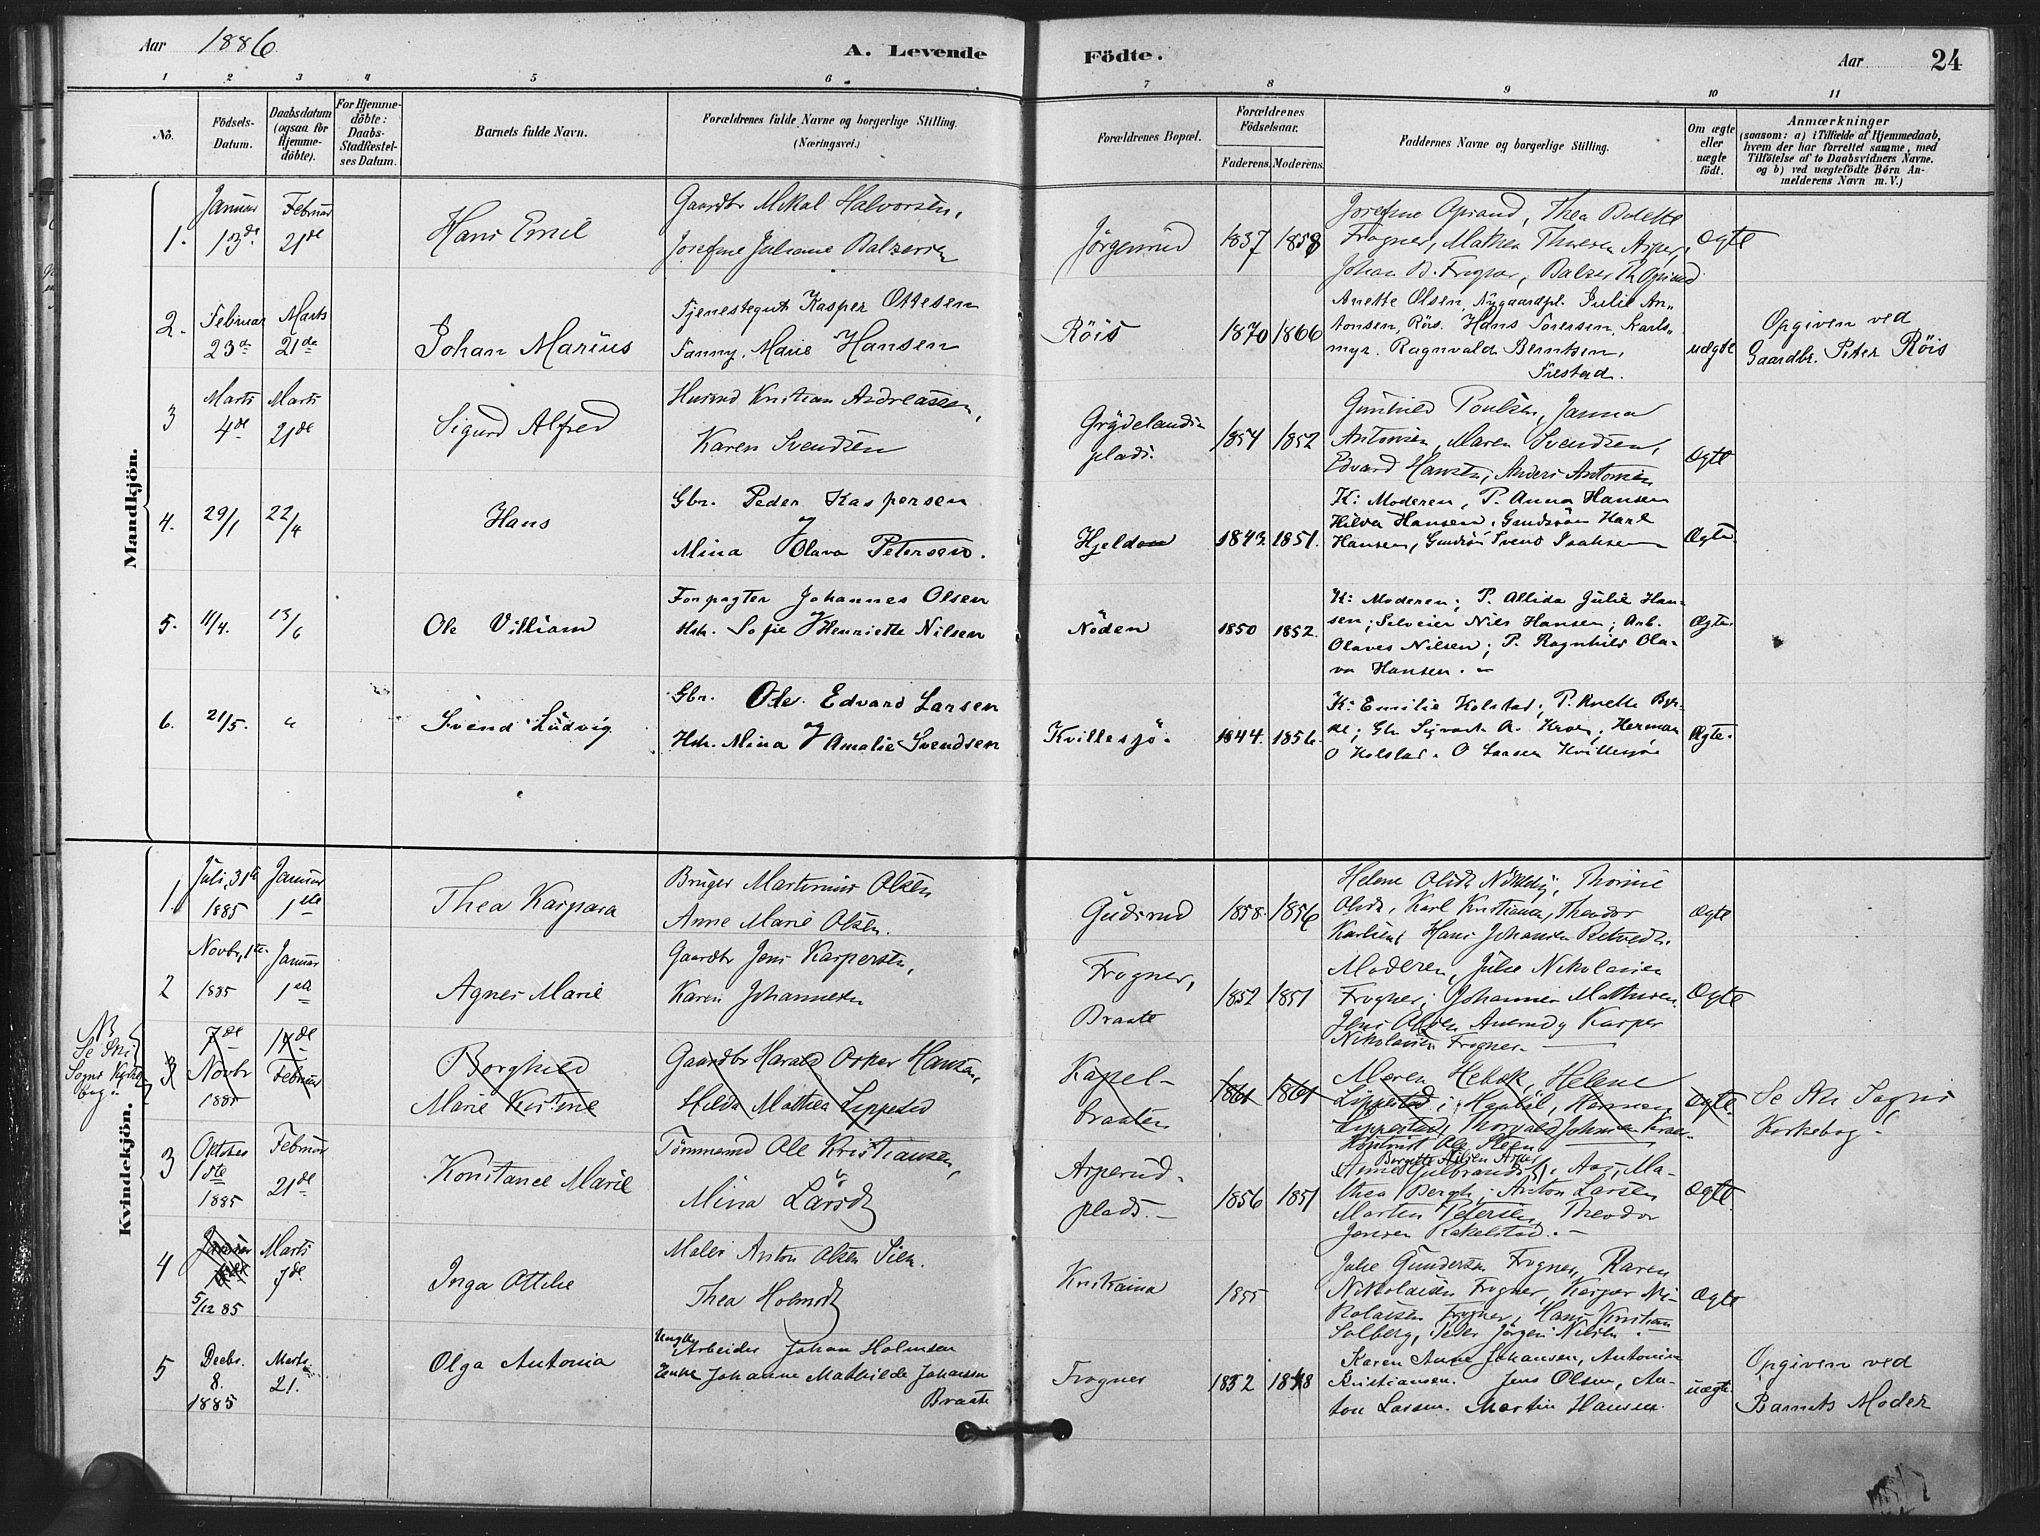 Aar 1886
A. Levende
Födte.
Aar
24
1 2 3 4 5 6 7 8 9 10 11
No.
Födsels-
Datum.
Daabsdatum
(ogsaa for
Hjemme-
döbte).
For Hjemme-
döbte:
Daabs-
Stadfæstel-
ses Datum.
Barnets fulde Navn.
Forældrenes fulde Navne og borgerlige Stilling.
(Næringsvei.)
Forældrenes Bopæl.
Forældrenes
Födselsaar.
Faderens. Moderens.
Faddernes Navne og borgerlige Stilling.
Om ægte
eller
uægte
födt.
Anmærkninger
(saasom: a) i Tilfælde af Hjemmedaab,
hvem der har forrettet samme, med
Tilföielse af to Daabsvidners Navne.
og b) ved uægtefödte Børn An-
melderens Navn m. V.)
Mandkjön.
1.
Januar
13de
Februar
21de
Hans Emil
Gaardbr Mikal Halvorsen,
Josefine Juliane Balzersen
Jörgenrud
1837 1858
Josefine Opsand, Thea Bolette
Frogner, Mathea Theresen Asper,
Johan B. Frogner, Balzer Th Opsand
Ægte
2.
Februar
23de
Marts
21de
Johan Marius
Tjenestegut Kasper Ottesen
Fanny Marie Hansen
Röis
1870 1866
Anette Olsen, Nygaardpl. Julie An-
tonsen, Röis. Hans Sorensen, Karls-
myr. Ragnvald Berntsen,
uægte
Opgiven ved
Gaardbr. Peter Röis
3
Marts
4de
Marts
21de
Sigurd Alfred
Husmd Kristian Andreasen,
Karen Svendsen
Grydelands-
plads.
1854 1852
Gunhild Poulsen, Janna
Antonsen, Maren Svendsen,
Edvard Hansen, Anders Antonsen
Ægte
4.
29/1
22/4
Hans
Gbr. Peder Kaspersen
og
Mina Olava Petersen.
Hjeldon
1843 1851.
K: Moderen, P. Anna Hansen
Hilda Hansen. Gaardsön Karl
Hansen, Gaardsön Svend Isaksen
Ægte
5.
11/4.
13/6
Ole Villiam
Forpagter Johannes Olsen
og
Hstr. Sofie Henriette Nilsen
Nöden
1850 1852.
K: Moderen; P. Allida Julie Han-
sen; Selveier Nils Hansen; Arb.
Olaves Nilsen; P. Ragnhild Ola-
va Hansen. —
Ægte
6.
21/5.
"
Svend Ludvig
Gbr. Ole Edvard Larsen
og
Hstr. Mina Amalie Svendsen
Kvillesjö.
1844. 1856.
K: Emilie Kolstad; P. Anette Byr-
de; Gbr Sigvart A. Kroer; Herman
O Kolstad. O Larsen Kvillesjø
Ægte.
Kvindekjön.
1.
Juli, 31te
1885
Januar
1ste
Thea Kaspara
Bruger Martinius Olsen
Anne Marie Olsen.
Gudsrud
1858 1856
Olsen, Karl Kristiansen, Theodor
Karlsen, Hans Johansen
Ægte
2
Novbr, 1te
1885
Januar
1ste
Agnes Marie
Gaardbr Jens Kaspersen,
Karen Johannesen
Frogner,
Braate
1852 1851
Moderen, Julie Nikolaisen
Frogner, Johannes Mathisen
Jens Olsen Auerud, Kasper
Nikolaisen Frogner. —
Ægte
NB
Se Ski
Sogns Kirke
bog.
3
7de
Novbr
1885
14de
Februar
Borghild
Marie Kirstine
Gaardbr Harald Oskar Hansen,
Hilda Mathea Lippestad
Kapel-
braaten
1861 1861
Maren Hebek, Helene
Ægte
Se Ski Sogns
Kirkebog.
3
Oktober
1ste
1885
Februar
21de
Konstance Marie
Tömmermd Ole Kristiansen,
Mina Larsdtr
Asperud-
plads. —
1856 1851
Berg; Anton Larsen
Martin Petersen, Theodor
Jensen Rakelstad. —
Ægte
4
Januar
5/12 85
Marts
7de
Inga Ottilie
Maler Anton Olsen
Thea Holmsdtr
Kristiania
1855
Julie Gundersen Frogner, Karen
Nikolaisen Frogner, Kasper Ni-
kolaisen Frogner, Hans Kristian
Solberg, Peder Jörgen Nilsen.
Ægte
5
Decbr.
8.
1885
Marts
21.
Olga Antonia
Ungk.
Arbeider Johan Holmsen
Enke Johanne Mathilde Johansen
Braate
Frogner
1852 1848
Karen Anne Johansen, Antonine
Kristiansen. Jens Olsen, An-
ton Larsen. Martin Hansen.
uægte
Opgiven ved
Barnets Moder